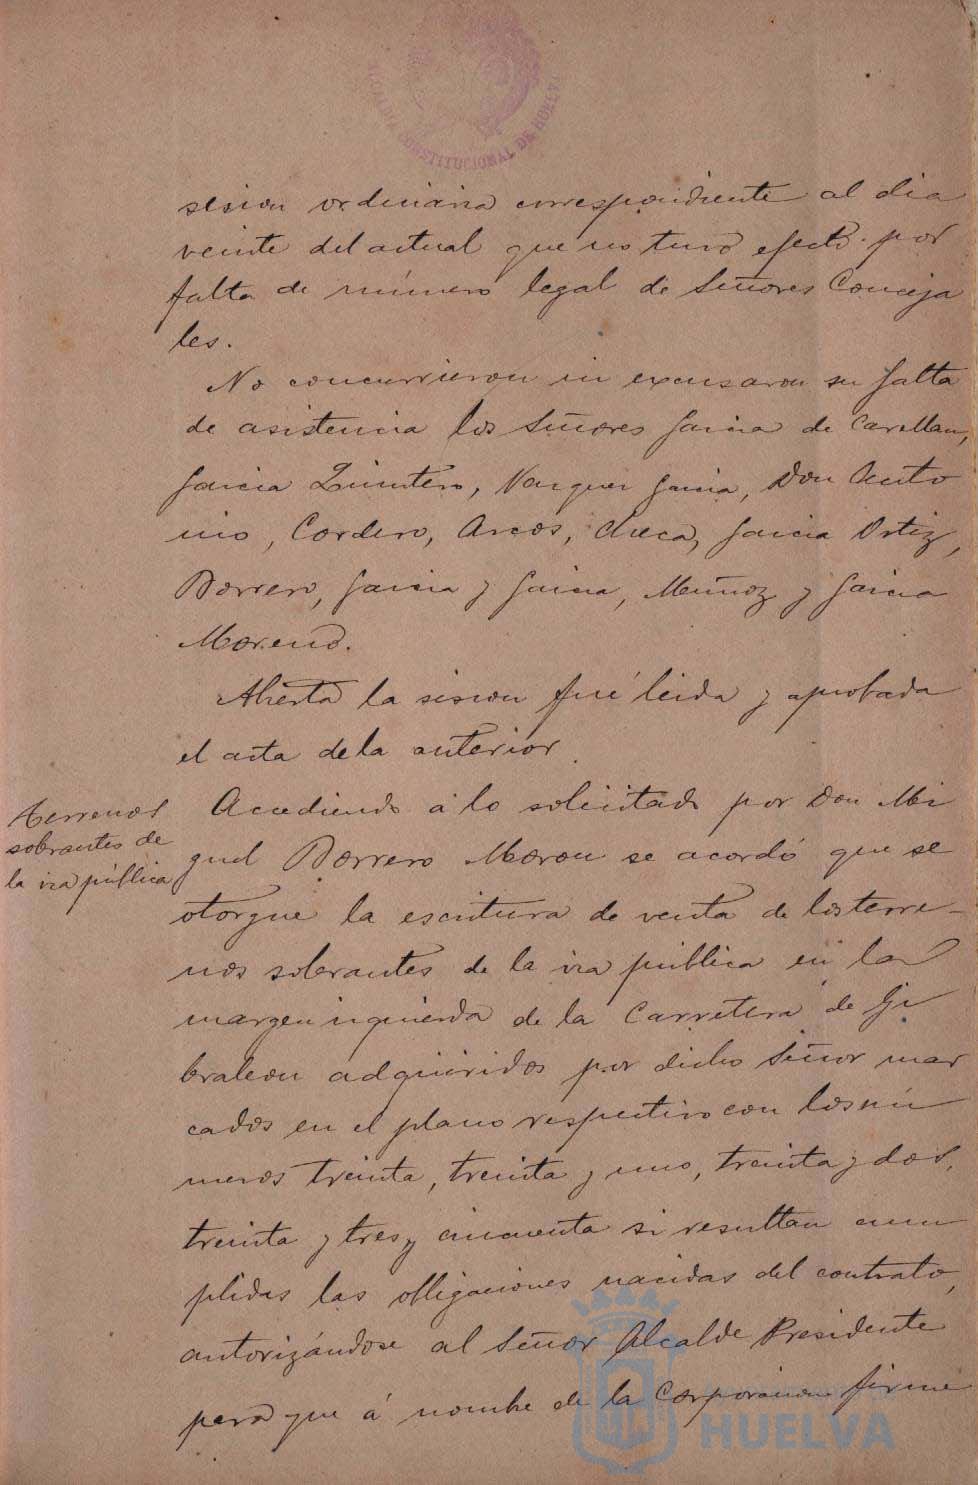 ALCALDIA CONSTITUCIONAL DE HUELVA
sesion ordinaria correspondiente al dia
veinte del actual que no tuvo efecto por
falta de número legal de Señores Conceja
les.
No concurrieron ni excusaron su falta
de asistencia los Señores Garcia de
Garcia Quintero, Vazquez Garcia, Don Anto
nio, Cordero, Arcos, Checa, Garcia Ortiz,
Borrero, Garcia y Garcia, Muñoz y Garcia
Moreno.
Abierta la sesion fué leida y aprobada
el acta de la anterior
Terrenos
sobrantes de
la via pública
Accediendo á lo solicitado por Don Mi
guel Borrero Moron se acordó que se
otorgue la escritura de venta de los terre-
nos sobrantes de la via pública en la
margen izquierda de la Carretera de Gi
braleon adquiridos por dicho Señor mar
cados en el plano respectivo con los nú
meros treinta, treinta y uno, treinta y dos,
treinta y tres y cincuenta si resultan cum
plidas las obligaciones nacidas del contrato,
autorizándose al Señor Alcalde Presidente
para que á nombre de la Corporacion firme
HUELVA